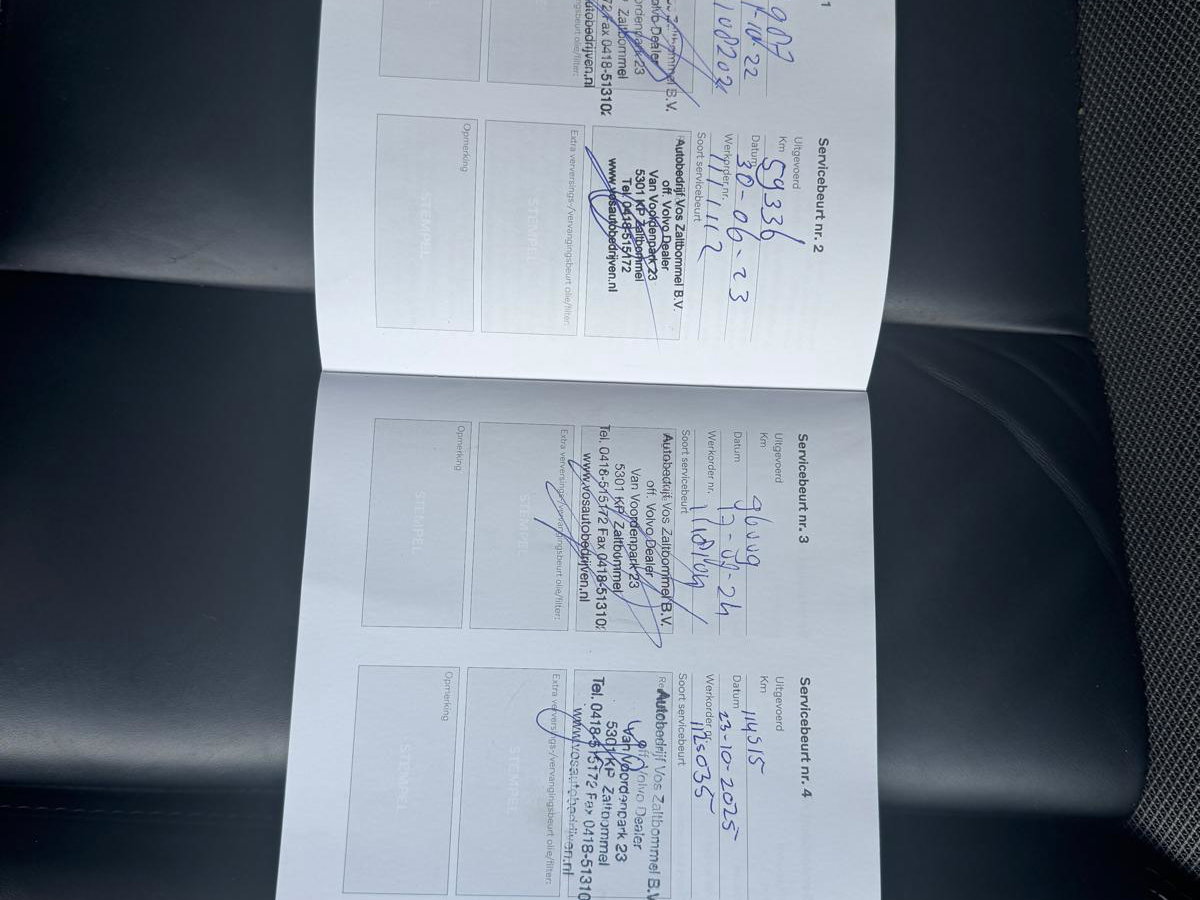 1
9087
-10-22
1108202
Zaltbommel B.V.
Volvo Dealer
23
Zaltbommel
Fax 0418-51310
utobedrijven.nl
Servicebeurt nr. 2
Uitgevoerd
Km 59336
Datum 30-06-23
Werkorder nr. 1111112
Soort servicebeurt
Autobedrijf Vos Zaltbommel B.V.
off. Volvo Dealer
Van Voordenpark 23
5301 KP Zaltbommel
Tel. 0418-515172
www.vosautobedrijven.nl
Extra verversings-/vervangingsbeurt olie/filter:
STEMPEL
Opmerking
STEMPEL
Servicebeurt nr. 3
Uitgevoerd
Km
Datum
Werkorder nr.
Soort servicebeurt
Autobedrijf Vos Zaltbommel B.V.
off. Volvo Dealer
Van Voordenpark 23
5301 KP Zaltbommel
Tel. 0418-515172 Fax 0418-51310
www.vosautobedrijven.nl
Extra verversings-/vervangingsbeurt olie/filter:
STEMPEL
Opmerking
STEMPEL
Servicebeurt nr. 4
Uitgevoerd
Km 114515
Datum 23-10-2025
Werkorder nr. 1125035
Soort servicebeurt
Autobedrijf Vos Zaltbommel B.V.
off. Volvo Dealer
Van Voordenpark 23
5301 KP Zaltbommel
Tel. 0418-515172 Fax 0418-51310
www.vosautobedrijven.nl
Extra verversings-/vervangingsbeurt olie/filter:
STEMPEL
Opmerking
STEMPEL